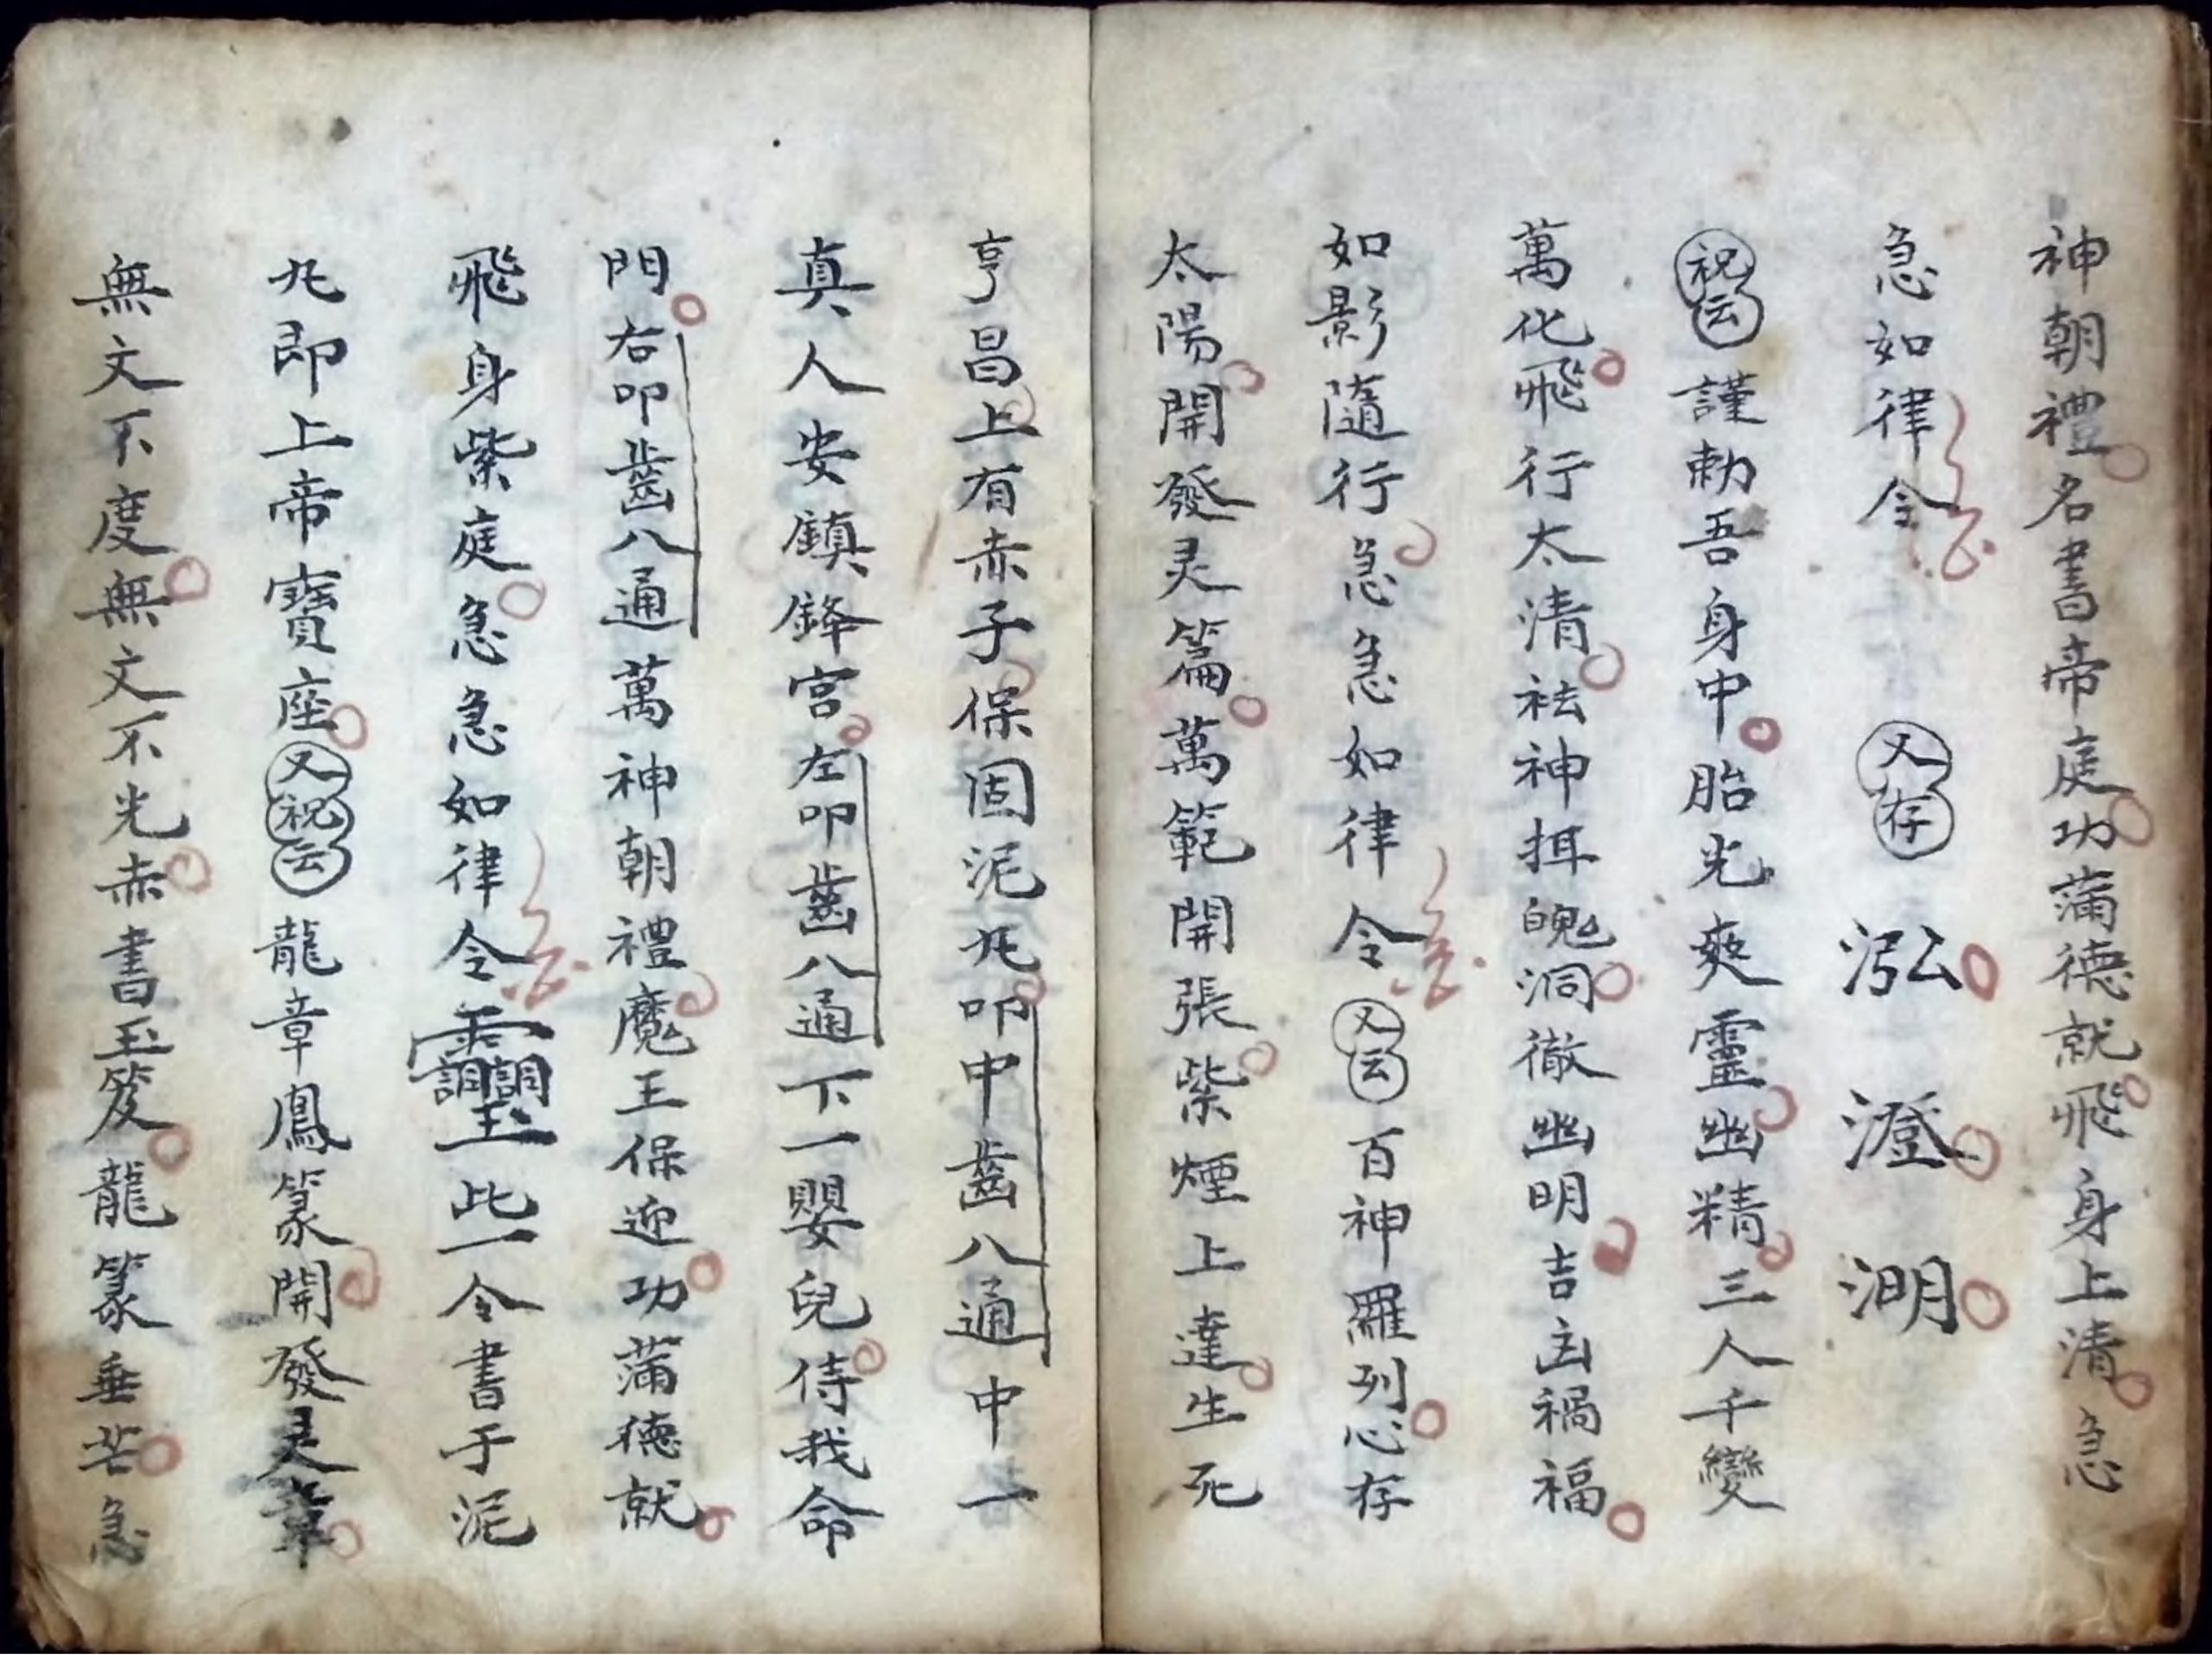 神朝禮名書帝庭功蒲德就飛身上清急
急如律令 又存 泓澄澗
祝云謹勑吾身中胎光爽靈幽精三人千變
萬化飛行太清祛神拑魄洞徹幽明吉凶禍福
如影隨行急急如律令又云百神羅列心存
太陽開發灵篇萬範開張紫煙上達生死
亨昌上有赤子保固泥丸叩中齒八通中一
真人安鎮鋒宮左叩齒八通下一嬰兒侍我命
門右叩齒八通萬神朝禮魔王保迎功蒲德就
飛身紫庭急急如律令此一令書于泥
丸即上帝寶座又祝云龍章鳳篆開發灵章
無文不度無文不光赤書玉笈龍篆垂芒急